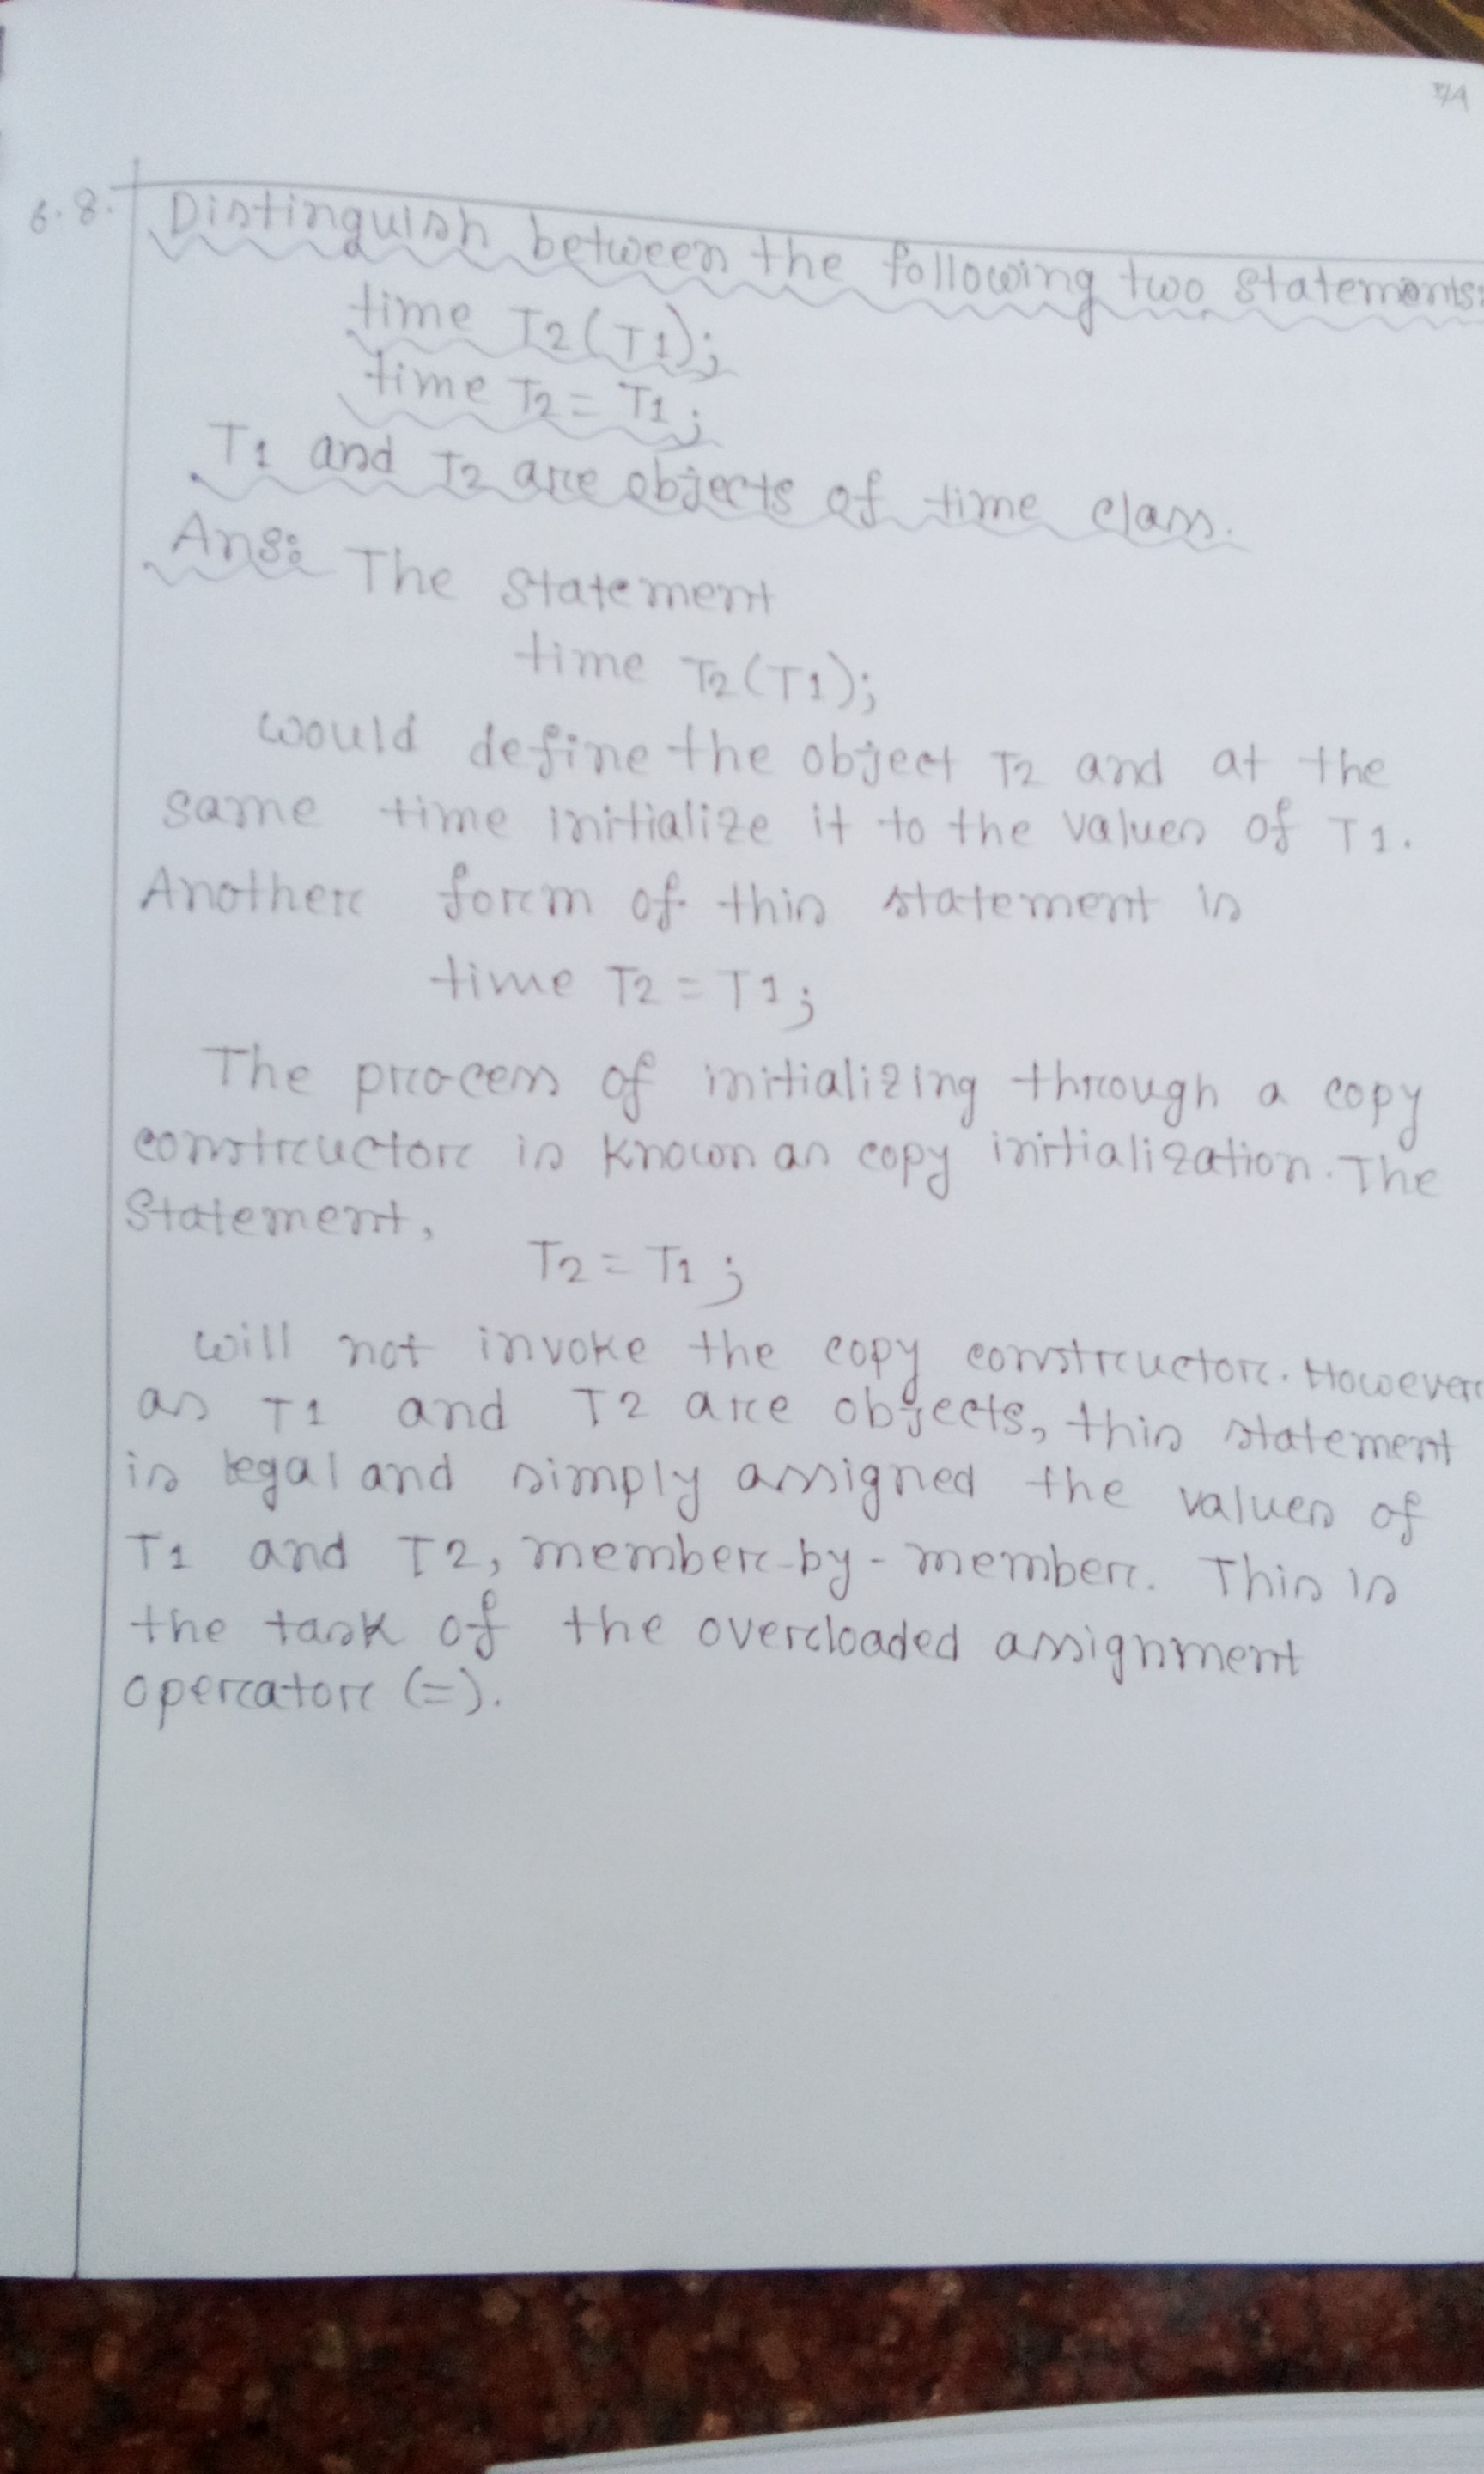 6.8. Distinguish between the following two statements:
time T2(T1);
time T2 = T1;
T1 and T2 are objects of time class.
Ans: The statement
time T2(T1);
would define the object T2 and at the
same time initialize it to the values of T1.
Another form of this statement is
time T2 = T1;
The process of initializing through a copy
constructor is known as copy initialization. The
Statement,
T2 = T1;
will not invoke the copy constructor. However
as T1 and T2 are objects, this statement
is legal and simply assigned the values of
T1 and T2, member-by-member. This is
the task of the overloaded assignment
operator (=).